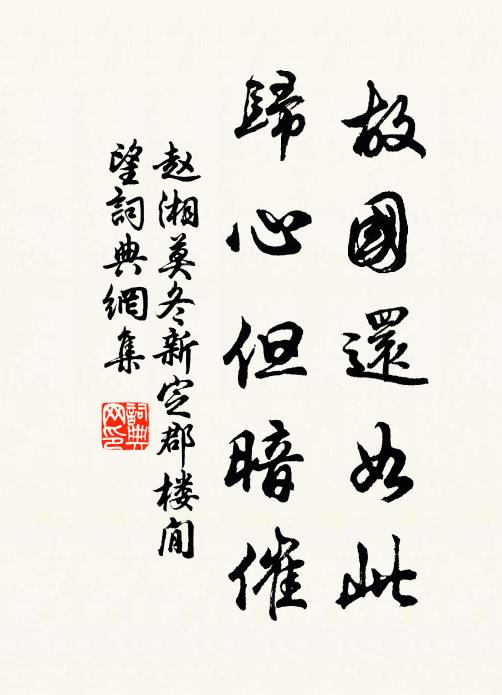 故國還如此
歸心但暗催
赵湘莫冬新定郡楼閒
望詞典網集
詞典网印